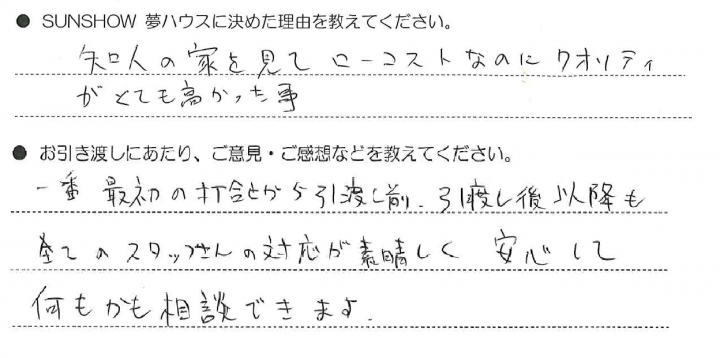 ● SUNSHOW 夢ハウスに決めた理由を教えてください。
知人の家を見て ローコストなのに クオリティ
がとても高かった事
● お引き渡しにあたり、ご意見・ご感想などを教えてください。
一番 最初の打合せから引渡し前、引渡し後以降も
全てのスタッフさんの対応が素晴しく 安心して
何もかも相談できます。